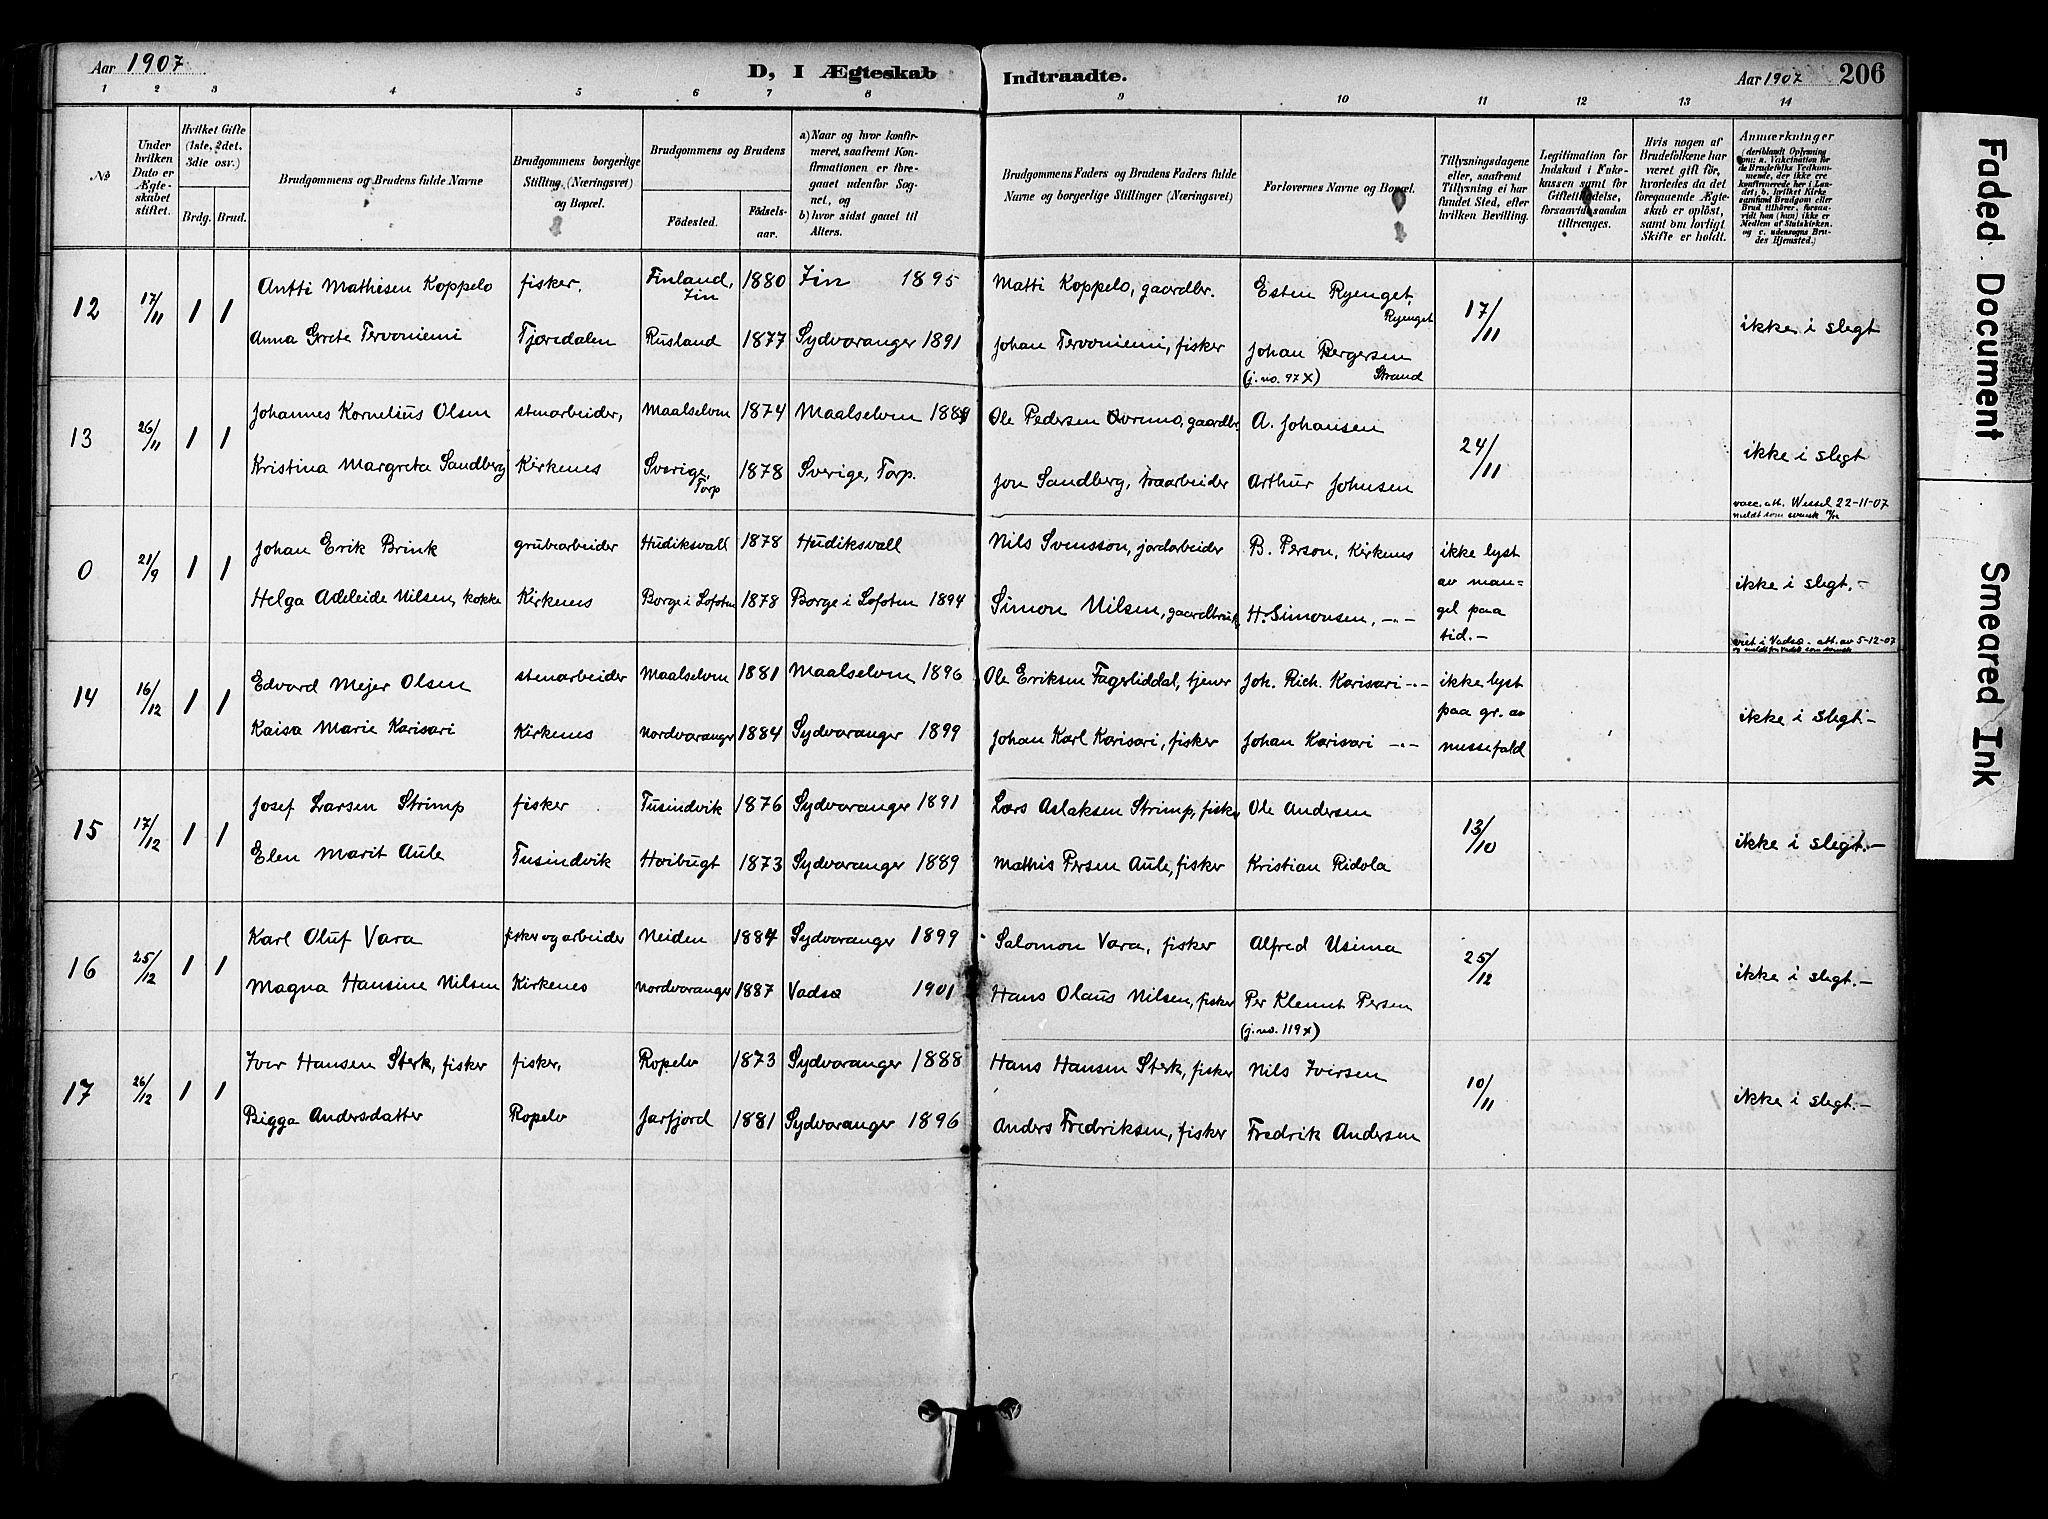 Aar 1907
D, I Ægteskab Indtraadte.
Aar 1907 206
1 2 3 4 5 6 7 8 9 10 11 12 13 14
No
Under hvilken Dato er Ægteskabet stiftet.
Hvilket Gifte (1ste, 2det, 3die osv.)
Brdg. Brud.
Brudgommens og Brudens fulde Navne
Brudgommens borgerlige Stilling, (Næringsvei) og Bopæl.
Brudgommens og Brudens
Fødested.
Fødselsaar.
a) Naar og hvor konfirmeret, saafremt Konfirmationen er foregaaet udenfor Sognet, og
b) hvor sidst gaaet til Alters.
Brudgommens Faders og Brudens Faders fulde Navne og borgerlige Stillinger (Næringsvei)
Forlovernes Navne og Bopæl.
Tillysningsdagene eller, saafremt Tillysning ei har fundet Sted, efter hvilken Bevilling.
Legitimation for Indskud i Enkekassen samt for Giftetilladelse, forsaavidt saadan tiltrænges.
Hvis nogen af Brudefolkene har været gift før, hvorledes da det foregaaende Ægteskab er opløst, samt om lovligt Skifte er holdt.
Anmærkninger
(deriblandt Oplysning om: a. Vakcination for de Brudefolks Vedkommende, der ikke ere konfirmerede her i Landet; b. hvilket Kirkesamfund Brudgom eller Brud tilhører, forsaavidt han (hun) ikke er Medlem af Statskirken, og c. udensogns Brudes Hjemsted.)
12 17/11 1 1 Antti Mathisen Koppelo fisker. Finland, Iin 1880 Iin 1895 Matti Koppelo, gaardbr. Esten Ryenget, Ryenget 17/11 ikke i slegt
Anna Grete Tervoniemi Tjæredalen Rusland 1877 Sydvaranger 1891 Johan Tervoniemi, fisker Johan Bergersen Strand
(j.no. 97X)
13 26/11 1 1 Johannes Kornelius Olsen stenarbeider, Maalselven 1874 Maalselven 1889 Ole Pedersen gaardbr. A. Johansen 24/11 ikke i slegt
Kristina Margreta Sandberg Kirkenes Sverige, Torp 1878 Sverige, Torp. Jon Sandberg, træarbeider Arthur Johnsen
vacc. att. Wessel 22-11-07
meldt som svensk
0 21/9 1 1 Johan Erik Brink grubearbeider Hudiksvall 1878 Hudiksvall Nils Svensson, jordarbeider B. Person, Kirkenes ikke lyst av mangel paa tid.- ikke i slegt.-
Helga Adeleide Nilsen, kokke Kirkenes Borge i Lofoten 1878 Borge i Lofoten 1894 Simon Nilsen, gaardbruk. H. Simonsen, -"-
viet i Vadsø - att. av 5-12-07
og meldt fra Vadsø som svensk
14 16/12 1 1 Edvard Mejer Olsen stenarbeider Maalselven 1881 Maalselven 1896 Ole Eriksen Fagerliddal, tjener Joh. Rich. Karisari -"- ikke lyst paa gr. av messefald ikke i slegt.-
Kaisa Marie Karisari Kirkenes Nordvaranger 1884 Sydvaranger 1899 Johan Karl Karisari, fisker Johan Karisari -"-
15 17/12 1 1 Josef Larsen Strimp fisker Tusindvik 1876 Sydvaranger 1891 Lars Aslaksen Strimp, fisker Ole Andersen 13/10 ikke i slegt.-
Elen Marit Aule Tusindvik Hoibugt 1873 Sydvaranger 1889 Mathis Persen Aule, fisker Kristian Ridola
16 25/12 1 1 Karl Oluf Vara fisker og arbeider Neiden 1884 Sydvaranger 1899 Salomon Vara, fisker Alfred Usima 25/12 ikke i slegt.-
Magna Hansine Nilsen Kirkenes Nordvaranger 1887 Vadsø 1901 Hans Olaus Nilsen, fisker Per Klemet Persen
(j.no. 119X)
17 26/12 1 1 Iver Hansen Sterk, fisker fisker, Ropelv 1873 Sydvaranger 1888 Hans Hansen Sterk, fisker Nils Iversen 10/11 ikke i slegt.-
Bigga Andersdatter Ropelv Jarfjord 1881 Sydvaranger 1896 Anders Fredriksen, fisker Fredrik Andersen
Faded Document
Smeared Ink